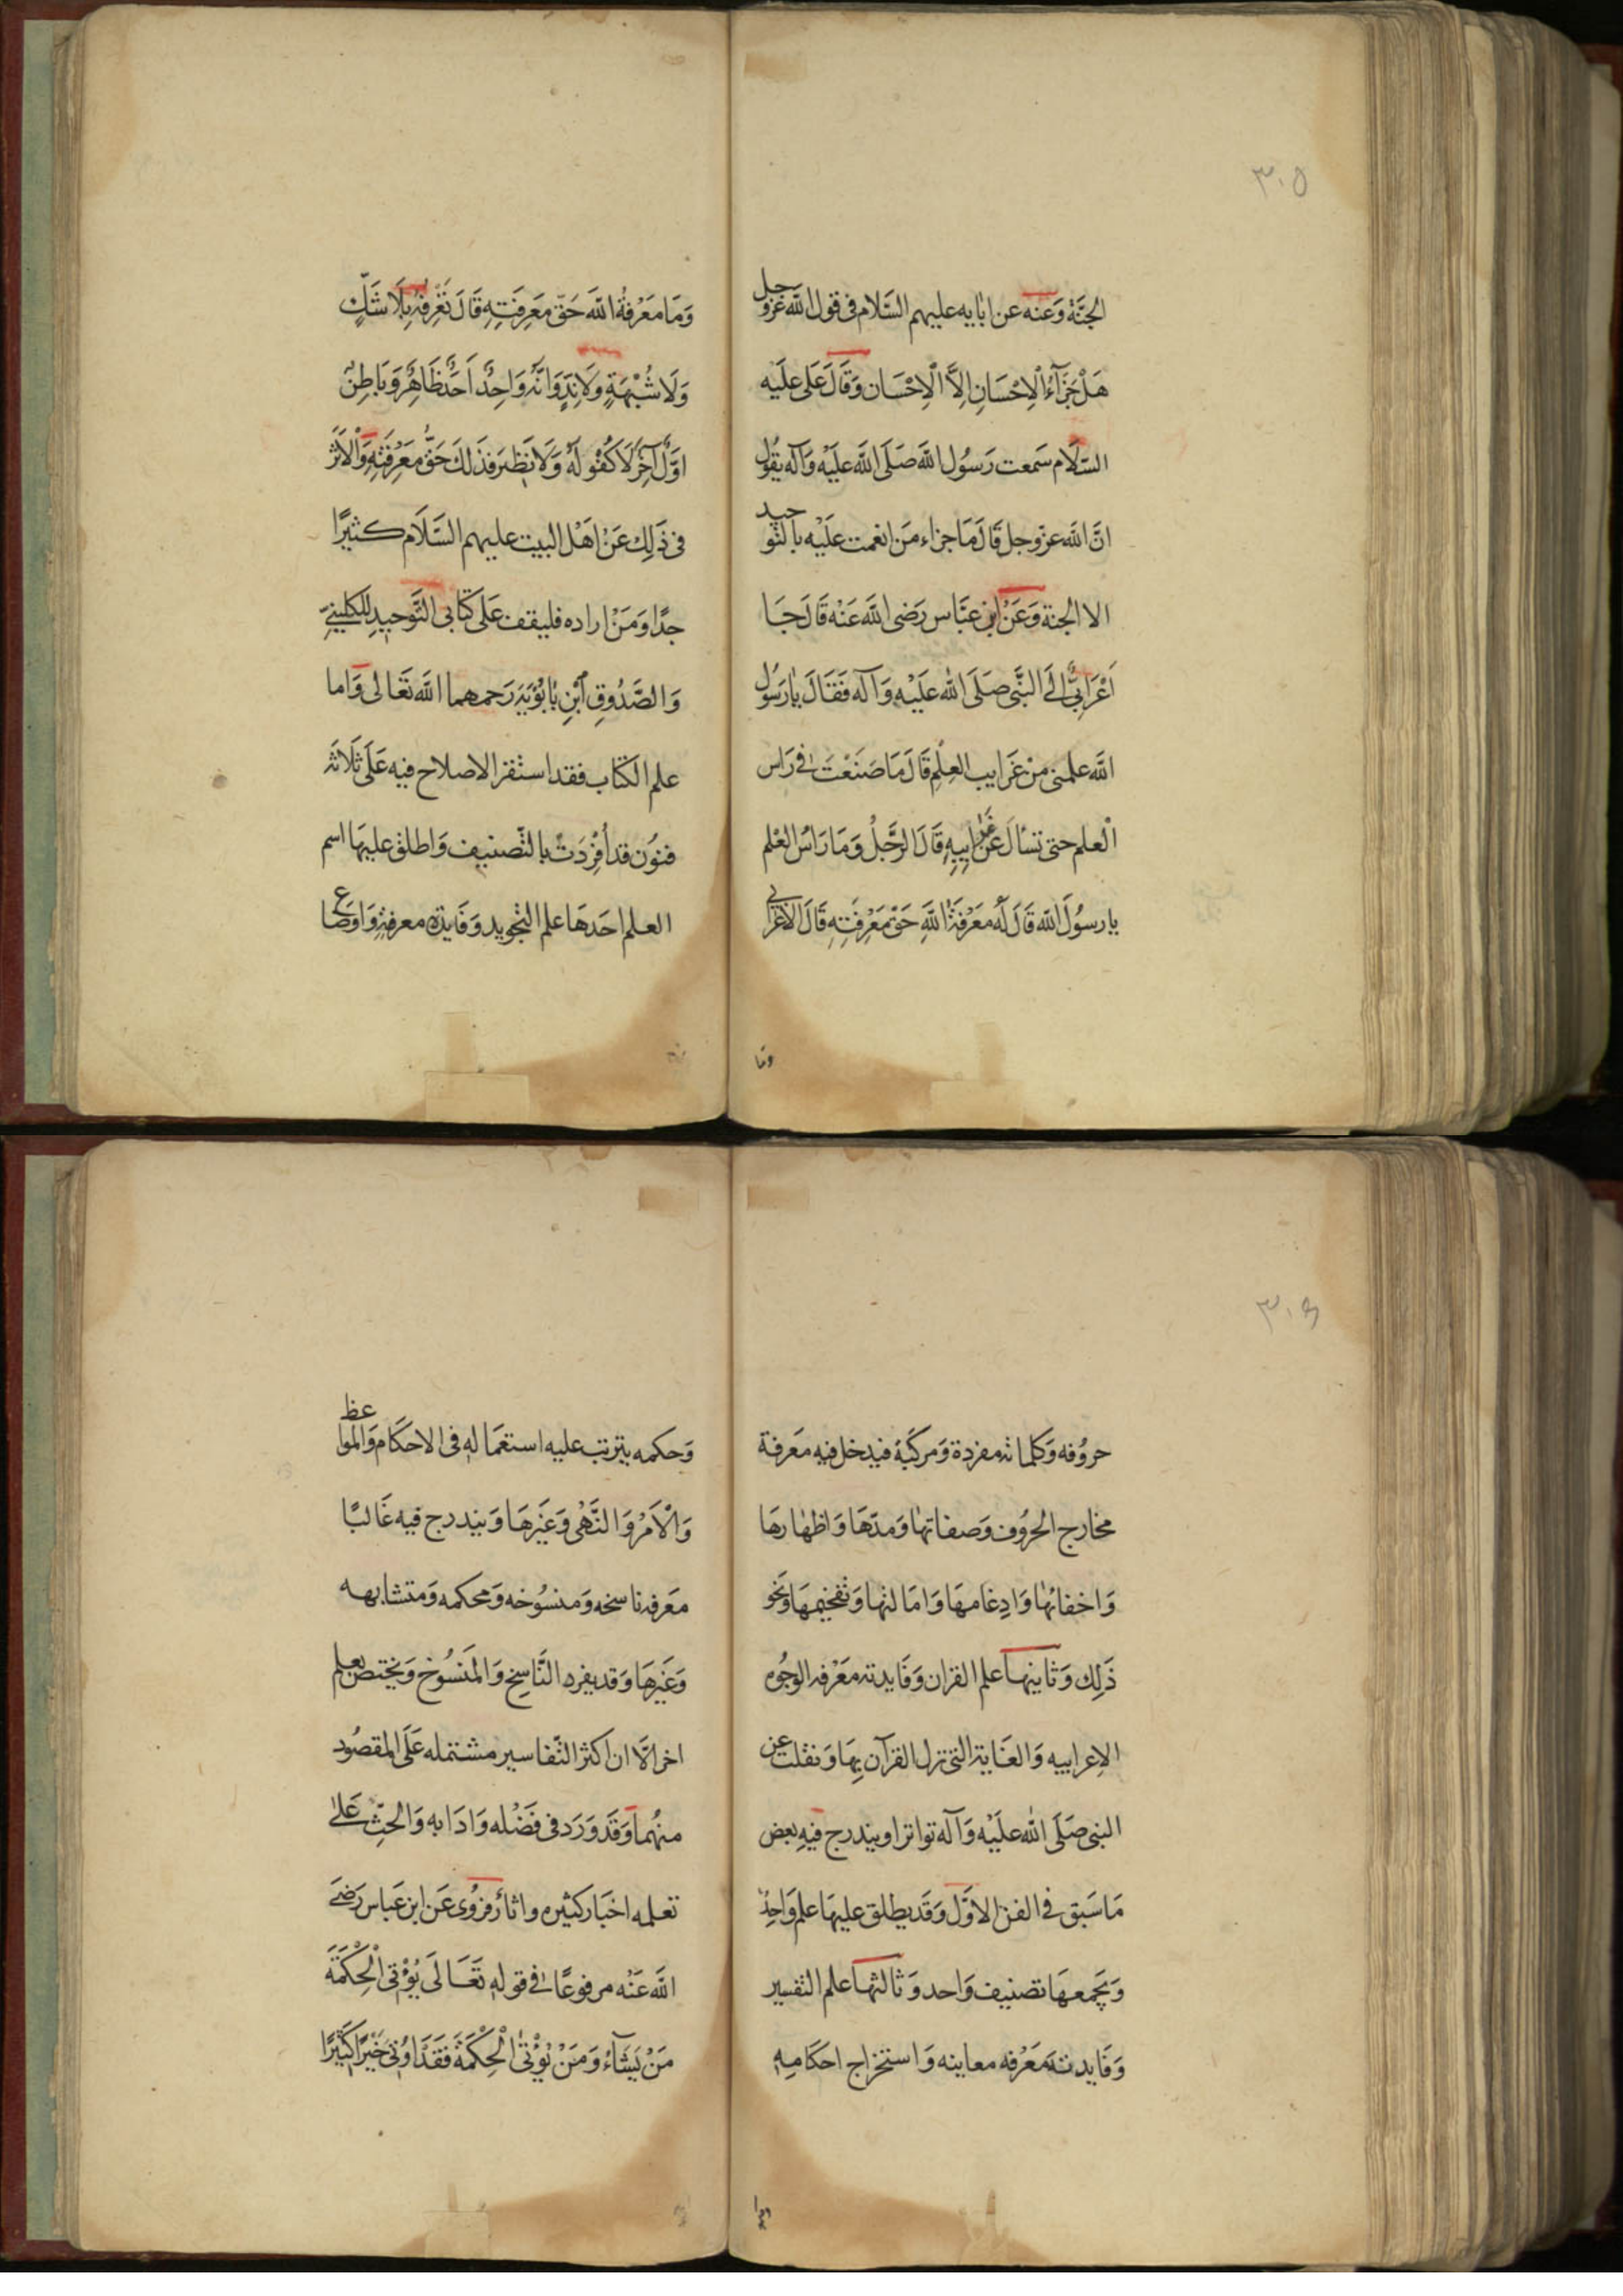 ٣٠٥
الجنَّة وَعنه عن اٰبايه عليهم السَّلام فى قول اللَّه عَزوجل
هَلْ جَزَآءُ الْاِحْسَانِ اِلاَّ الْاِحْسَان وَقَالَ عَلى علَيه
السَّلَام سَمعت رَسُول اللَّه صَلَى اللَّه علَيْه وَآله يقوُل
انَّ اللَّه عزوجل قَالَ مَا جزاء مَن انعمت علَيْه بالتوحيد
الا الجنة وَعَنْ ابن عبَّاس رَضى اللَّه عَنْه قَالَ جَا
اَعْرَابىٌّ الَى النبَّى صَلَى اللَّه علَيْهِ وَآله فَقَالَ يٰا رَسُول
اللَّه علمنى مِنْ غَرَايب العِلْمِ قَالَ مَا صَنَعْتَ فى رَاس
الْعلم حتى تسْاَلَ عَنْ غَرَايبِه قَالَ الرَّجُلُ وَمَا رَاسُ العْلم
يا رسُولَ اللَّه قَالَ لَهُ مَعْرفَةُ اللَّهِ حَقَّ مَعْرِفَتِهِ قَالَ الاعْرَابى
وَما
وَمَا مَعْرفةُ اللَّه حَقّ مَعرِفَتِهِ قَالَ تَعْرِفهُ بِلَا شَكٍّ
وَلَا شُبْهَةٍ وَلَا نِدٍّ وَانَّهُ وَاحِدٌ اَحَدٌ ظَاهِرٌ وَبَاطِنٌ
اوَّلٌ آخِرٌ لَا كفُو لَهُ وَلَا نَظير فَذلكَ حَقُّ مَعْرِفَتِهِ وَالاثر
فى ذَلِك عَنْ اهْل البيت عليهم السَّلَام كثيرًا
جدًّا وَمَنْ اراده فليقف عَلى كتابى التَّوحيد للكلينىّ
وَالصَّدُوقِ ابْنِ بٰابُوَيَه رَحمهما اللَّه تَعَالى وَاما
علم الكتاب فقد استقر الاصلاح فيه عَلَى ثلَاثة
فنوُن قد اُفْرِدَتْ بالتَّصنيف وَاطلق عليهَا اسم
العلم احَدهَا علم التجويد وَفَايدته معرفة وَاوضَاع
٣٠٦
حروُفه وَكلماته مفردة وَمركبَّة فيدخل فيهِ مَعرفة
مخارج الحروُف وَصفاتهٰا وَمدّهَا وَاظهٰارهَا
وَاخفائهٰا وَادِغامهَا وَامالتهٰا وَتفخيمهَا وَنحو
ذَلِك وَثانيهٰا علم القران وَفَايدته مَعْرفه الوجُوه
الاِعرابيه وَالعنَاية التى نزل القرآن بِهَا وَنقلت عن
النبى صَلَى اللَّه علَيْه وَآله تواترا ويندرج فيهِ بعض
مَا سَبَق فى الفن الاوَّل وَقَد يطلق عليهَا علم وَاحِدٌ
وَيجمعهَا تصنيف وَاحد وَثالثهٰا علم التفسير
وَفَايدته مَعْرفه معانيه وَاستخراج احكامهِ
وَحكمه يترتب عليه استعمَاله فى الاحكَام وَالمواعظ
وَالْاَمْر وَالنَّهْى وَغَيْرهَا وَيندرج فيه غَالبًا
مَعرفه ناسخه وَمنسُوخه وَمحكمه وَمتشابهه
وَغَيْرهَا وَقد يفرد النَّاسِخ وَالمَنسُوخ وَيختص بعلم
اخر الَّا ان اكثر التّفاسير مشتمله عَلَى المقصُود
منهُما وَقَد وَرَد فى فَضْله وَادَابه وَالحثِّ عَلىٰ
تعلمه اخبَار كثيره واثار فرُوى عَن ابن عَباس رَضىَ
اللَّه عَنْه مرفوعًا فى قوله تَعَالَى يُؤْتى الْحِكْمَةَ
مَنْ يَشَآءُ وَمَنْ يُؤْتىٰ الْحِكْمَةَ فَقَدْ اُوتىَ خَيْرًا كَثيرًا